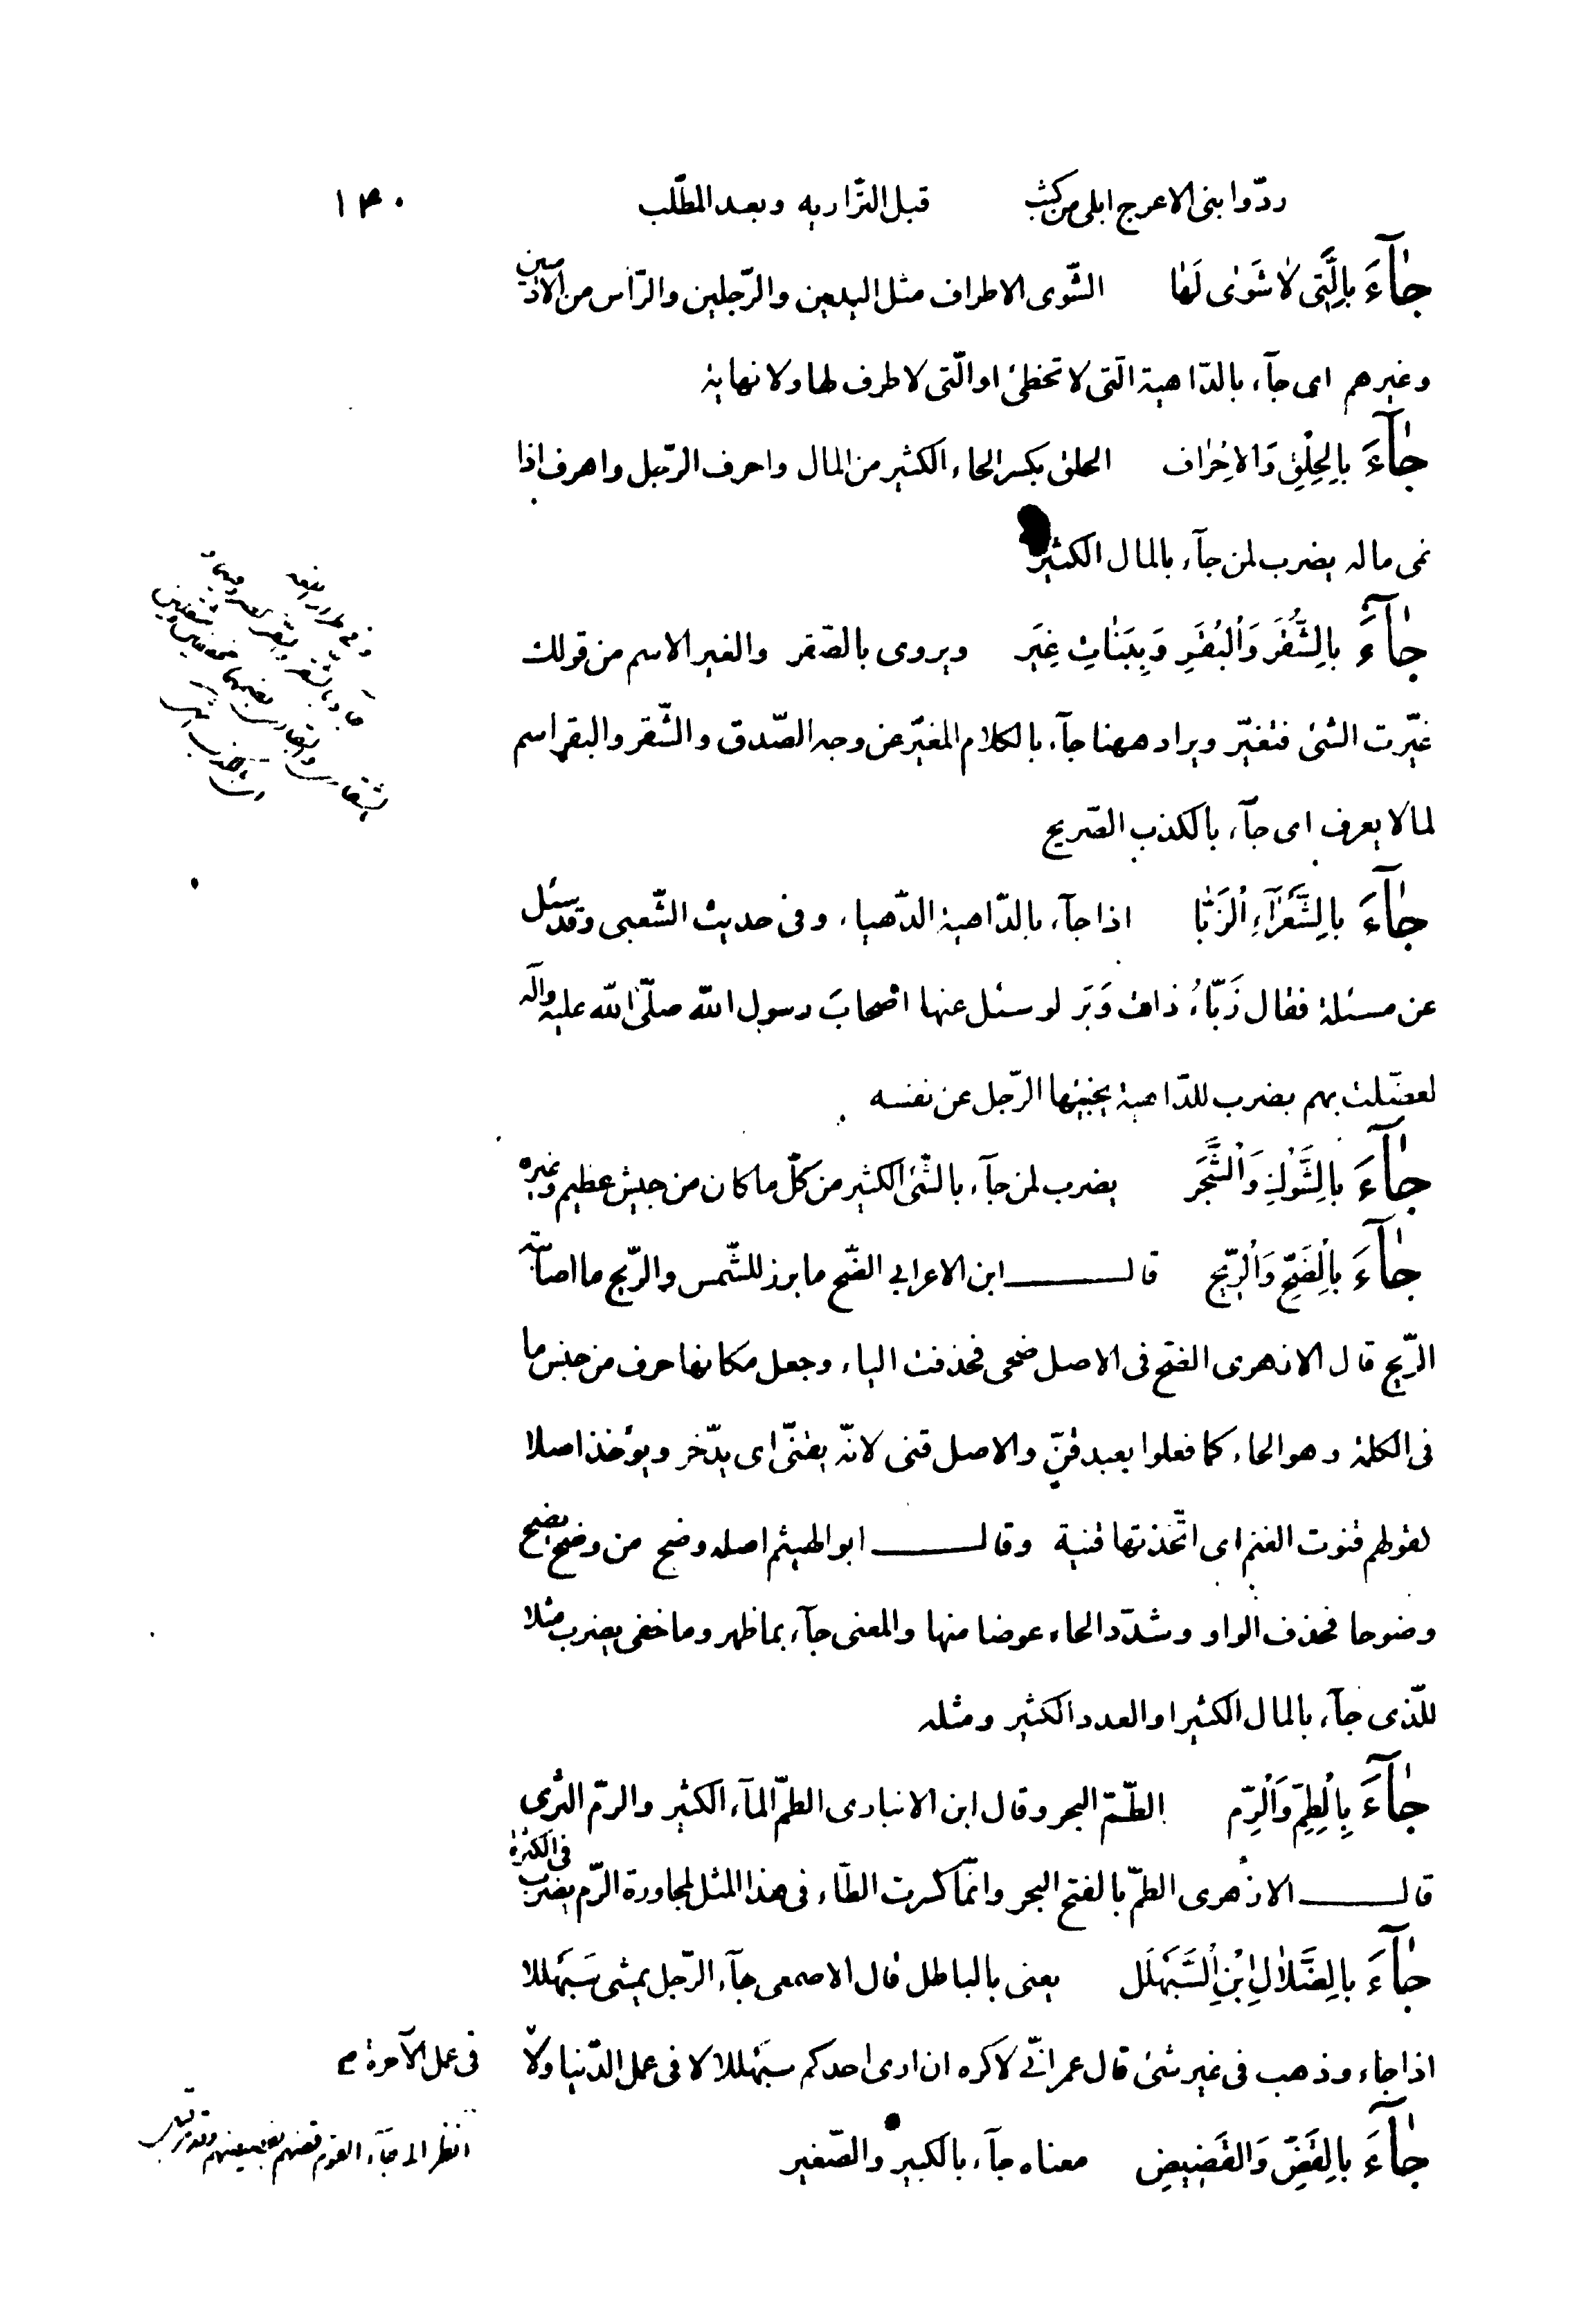 ردّوا بنی الاعرج ابلی من کثب قبل التّراریه وبعد المطّلب ۱۴۰
جٰآءَ بِالَّتِی لٰا شَوٰی لَهٰا الشّوی الاطراف مثل الیدین والرّجلین والرّاس من الادمیین
وغیرهم ای جآء بالدّاهیة الّتی لا تخطئ او الّتی لا طرف لها ولا نهایة
جٰآءَ بِالحِلْقِ وَالاِحْرٰاف الحلق بکسر الحاء الکثیر من المال واحرف الرّجل واهرف اذا
نمی ماله یضرب لمن جآء بالمال الکثیر
جٰآءَ بِالشُّقَرِ وَالْبُقَرِ وَبِبَنٰاتِ غِیَر ویروی بالصّقر والغیر الاسم من قولك
غیّرت الشئ فتغیّر ویراد ههنا جآء بالکلام المغیّر عن وجه الصّدق والشّقر والبقر اسم
لما لا یعرف ای جآء بالکذب الصّریح
جٰآءَ بِالشَّعْرٰآءِ الْزَبّٰا اذا جآء بالدّاهیة الدّهیاء وفی حدیث الشّعبی وقد سئل
عن مسئلة فقال زَبّاءُ ذات وَبَر لو سئل عنها اصحابَ رسول الله صلّی الله علیه وآله
لعضّلت بهم یضرب للدّاهیة یجنیها الرّجل عن نفسه
جٰآءَ بِالشَّوْكِ وَالْشَّجَر یضرب لمن جآء بالشّئ الکثیر من کلّ ما کان من جیش عظیم وغیره
جٰآءَ بِالْضَّحِّ وَالْرِّیح قال ابن الاعرابی الضّح ما برز للشّمس والرّیح ما اصابته
الرّیح قال الازهری الضّح فی الاصل ضحی فحذفت الیاء وجعل مکانها حرف من جنس ما
فی الکلمة وهو الحاء کما فعلوا بعبد قنّ والاصل قنی لانّه یقنّی ای یدّخر ویؤخذ اصلا
لقولهم قنوت الغنم ای اتّخذتها قنیة وقال ابو الهیثم اصله وضح من وضح یضح
وضوحا فحذف الواو وشدّد الحاء عوضا منها والمعنی جآء بما ظهر وما خفی یضرب مثلا
للّذی جآء بالمال الکثیر او العدد الکثیر ومثله
جٰآءَ بِالْطِمِّ وَالْرِّم الطّمّ البحر وقال ابن الانباری الطمّ المآء الکثیر والرمّ الثّری
قال الازهری الطمّ بالفتح البحر وانّما کسرت الطّاء فی هذا المثل لمجاورة الرّم یضرب فی الکثرة
جٰآءَ بِالضَّلٰالِ ابْنِ الْسَّبَهْلَل یعنی بالباطل قال الاصمعی جآء الرّجل یمشی سَبَهْللا
اذا جاء وذهب فی غیر شئ قال عمر انّی لاکره ان اری احدکم سبَهْللا لا فی عمل الدّنیا ولا فی عمل الآخرة
جٰآءَ بِالقَضِّ وَالقَضیضِ معناه جآء بالکبیر والصّغیر
انظر الی جآء القوم قضهم بقضیضهم